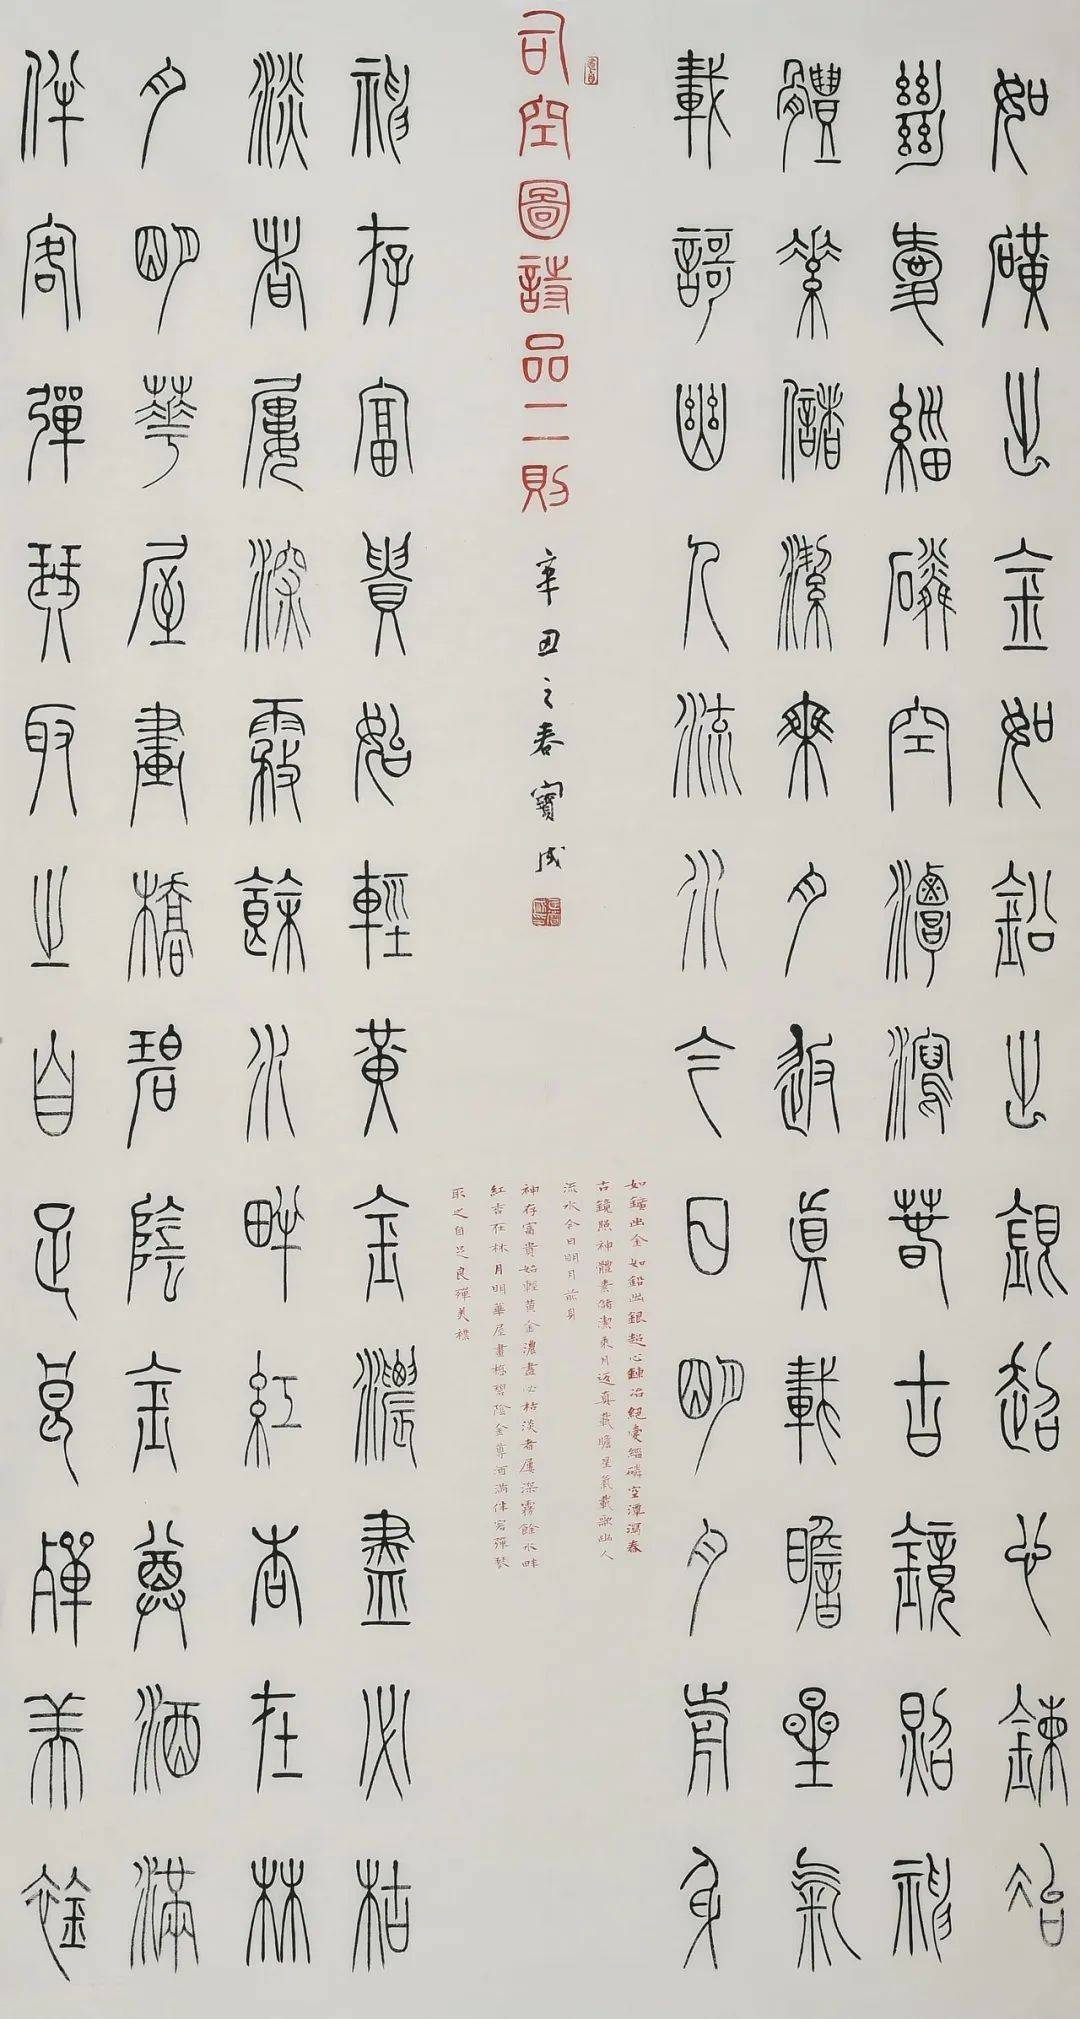 如磺出金如鉛出銀超心鍊冶
絕愛緇磷空潭瀉春古鏡照神
體素儲潔乘月返真載瞻星氣
載謌幽人流水今日明月前身
司空圖詩品二則
辛丑之春寶成
如鑛出金如鉛出銀超心鍊冶絕愛緇磷空潭瀉春
古鏡照神體素儲潔乘月返真載瞻星氣載歌幽人
流水今日明月前身
神存富貴始輕黃金濃盡必枯淡者屢深霧餘水畔
紅杏在林月明華屋畫橋碧陰金尊酒滿伴客彈琴
取之自足良殫美襟
神存富貴始輕黃金濃盡必枯
淡者屢深霧餘水畔紅杏在林
月明華屋畫橋碧陰金尊酒滿
伴客彈琴取之自足良殫美襟